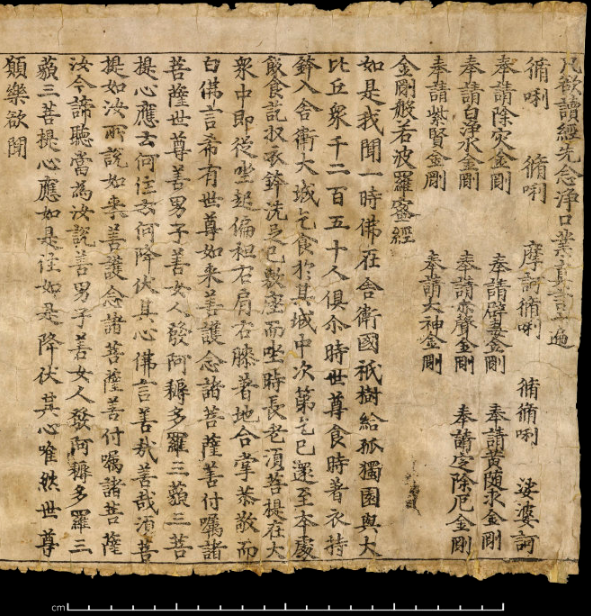 凡欲讀經先念淨口業真言一遍
脩唎 脩唎 摩訶脩唎 脩脩唎 娑婆訶
奉請除灾金剛 奉請辟毒金剛 奉請黃隨求金剛
奉請白淨水金剛 奉請赤聲金剛 奉請定除厄金剛
奉請紫賢金剛 奉請大神金剛
金剛般若波羅蜜經
如是我聞一時佛在舍衛國祇樹給孤獨園與大
比丘衆千二百五十人俱尒時世尊食時著衣持
鉢入舍衛大城乞食於其城中次第乞已還至本處
飯食訖収衣鉢洗足已敷座而坐時長老須菩提在大
衆中即從坐起偏袒右肩右膝著地合掌恭敬而
白佛言希有世尊如來善護念諸菩薩善付囑諸
菩薩世尊善男子善女人發阿耨多羅三藐三菩
提心應云何住云何降伏其心佛言善哉善哉須菩
提如汝所說如來善護念諸菩薩善付囑諸菩薩
汝今諦聽當為汝說善男子善女人發阿耨多羅三
藐三菩提心應如是住如是降伏其心唯然世尊
願樂欲聞
cm